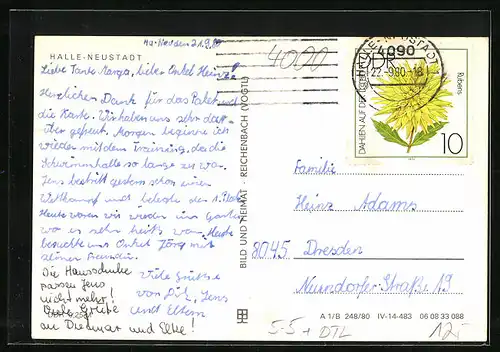 Ha-Neustadt 21.9.80
HALLE-NEUSTADT
Liebe Tante Marga, lieber Onkel Heinz!
Herzlichen Dank für das Paket und
die Karte. Wir haben uns sehr dar-
über gefreut. Morgen beginne ich
wieder mit dem Training, da die
Schwimmhalle so lange zu war.
Jens bestritt gestern schon einen
Wettkampf und belegte den 1. Platz
Heute waren wir wieder im Garten
wo es sehr heiß war. Heute
besuchte uns Onkel Jörg mit
seiner Freundin.
Viele Grüße
von Jens
und Eltern
Die Hausschuhe
passen Jens
nicht mehr!
Viele Grüße
an Dietmar und Elke!
BILD UND HEIMAT · REICHENBACH (VOGTL)
4090
HALLE-NEUSTADT
4090
22.-9.80-18
DDR
DAHLIEN AUF DER
Rubens
10
Familie
Heinz Adams
8045 Dresden
Neundorfer-Straße 19
A 1/B 248/80 IV-14-483 06 08 33 088
5-5+DTL
12,-